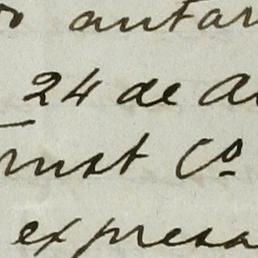 antar
24 de A
rust Co
expresa